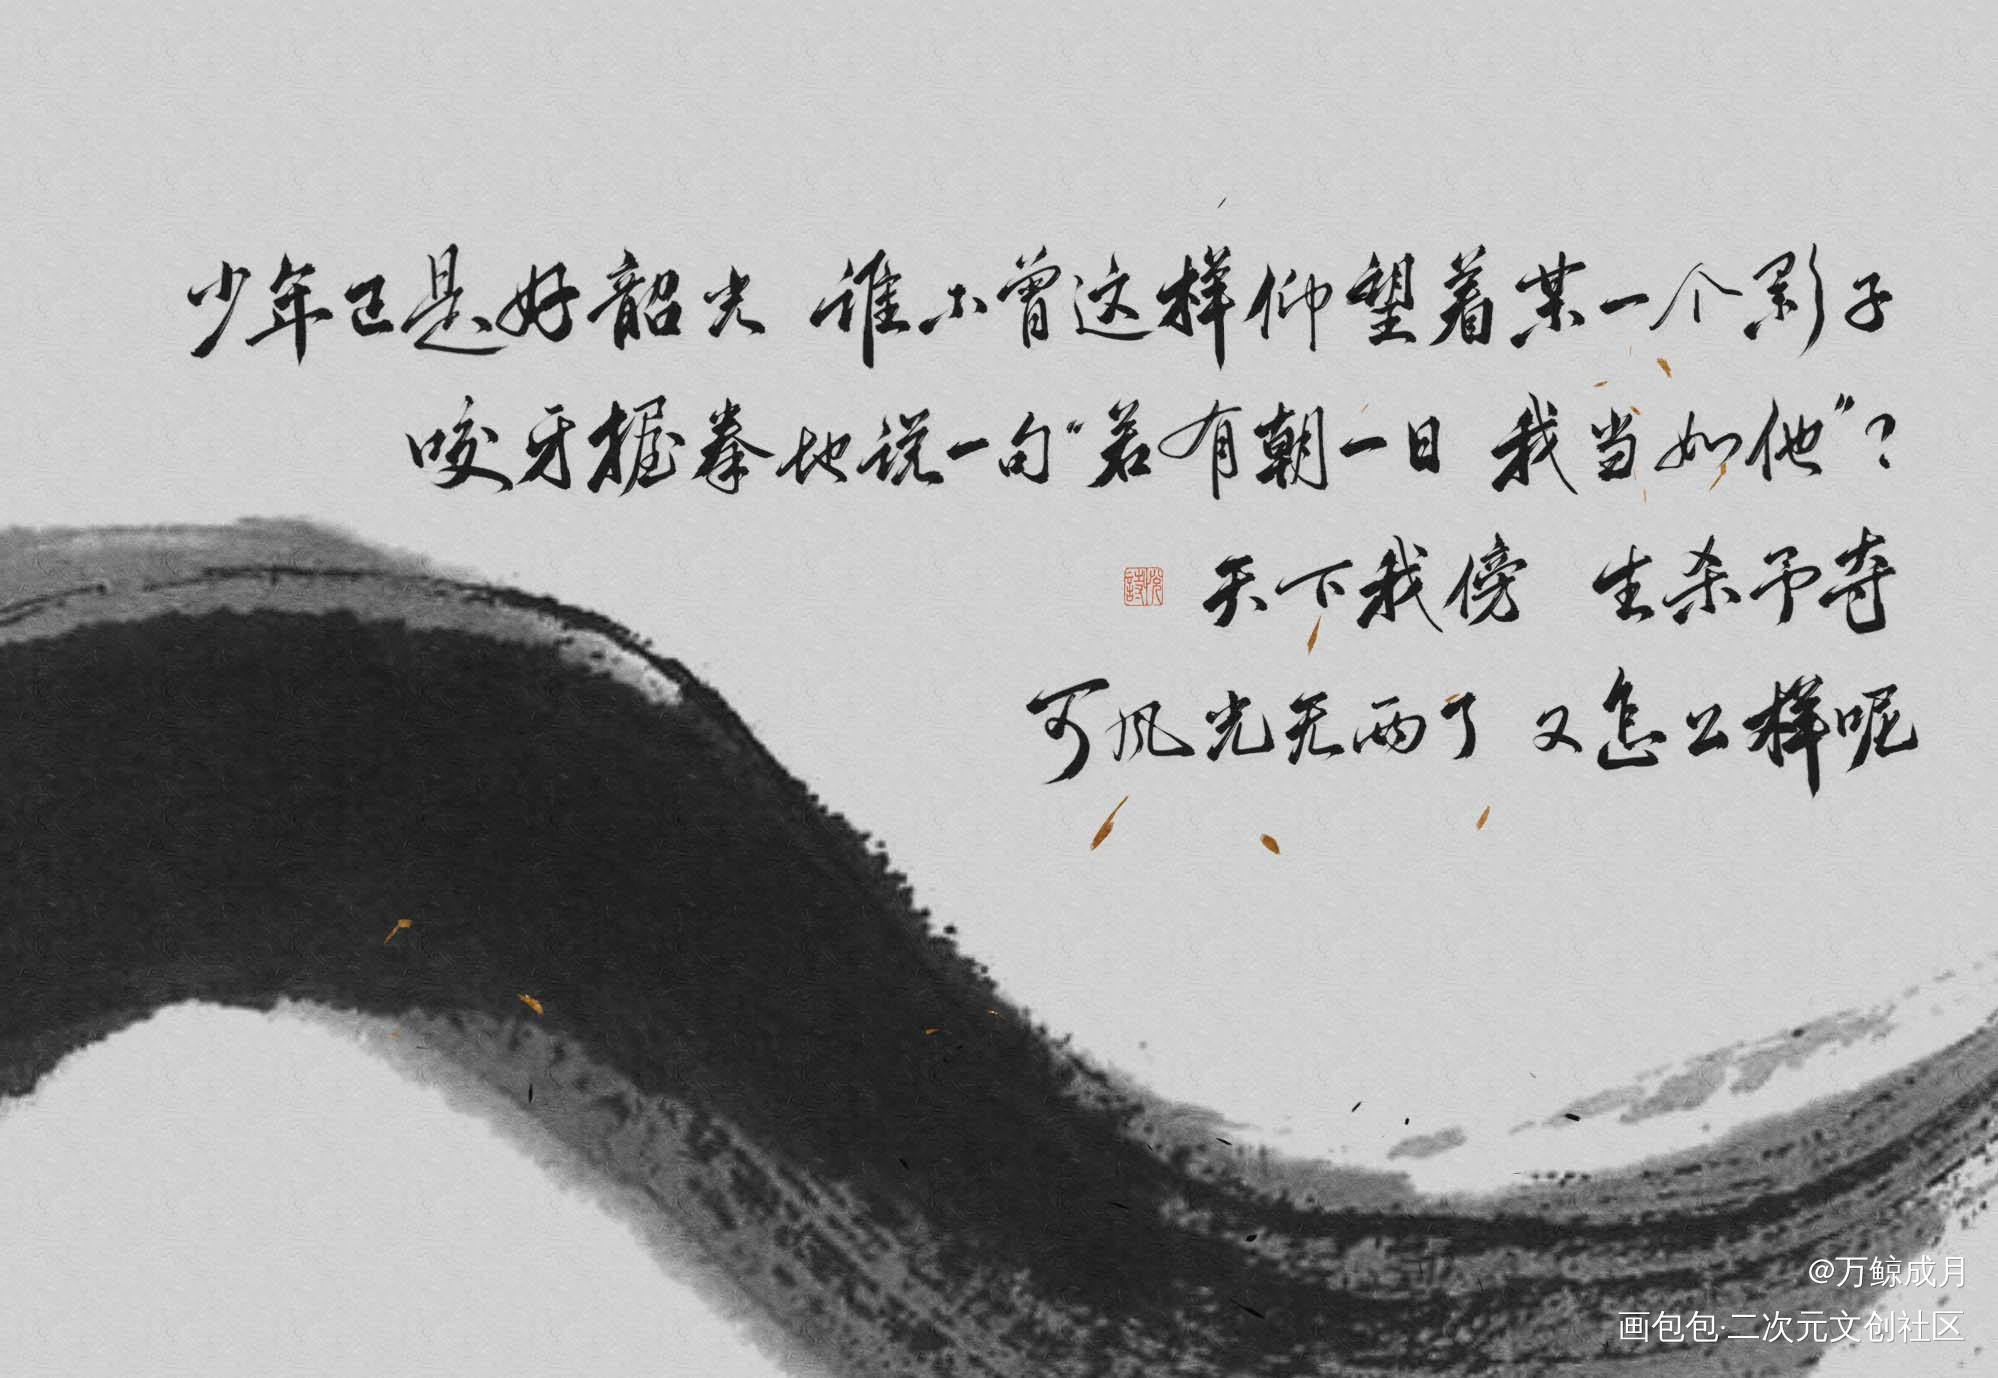 少年正是好韶光 谁不曾这样仰望着某一个影子
咬牙握拳地说一句“若有朝一日 我当如他”?
天下我傍 生杀予夺
可风光无两了 又怎么样呢
@万鲸成月
画包包·二次元文创社区